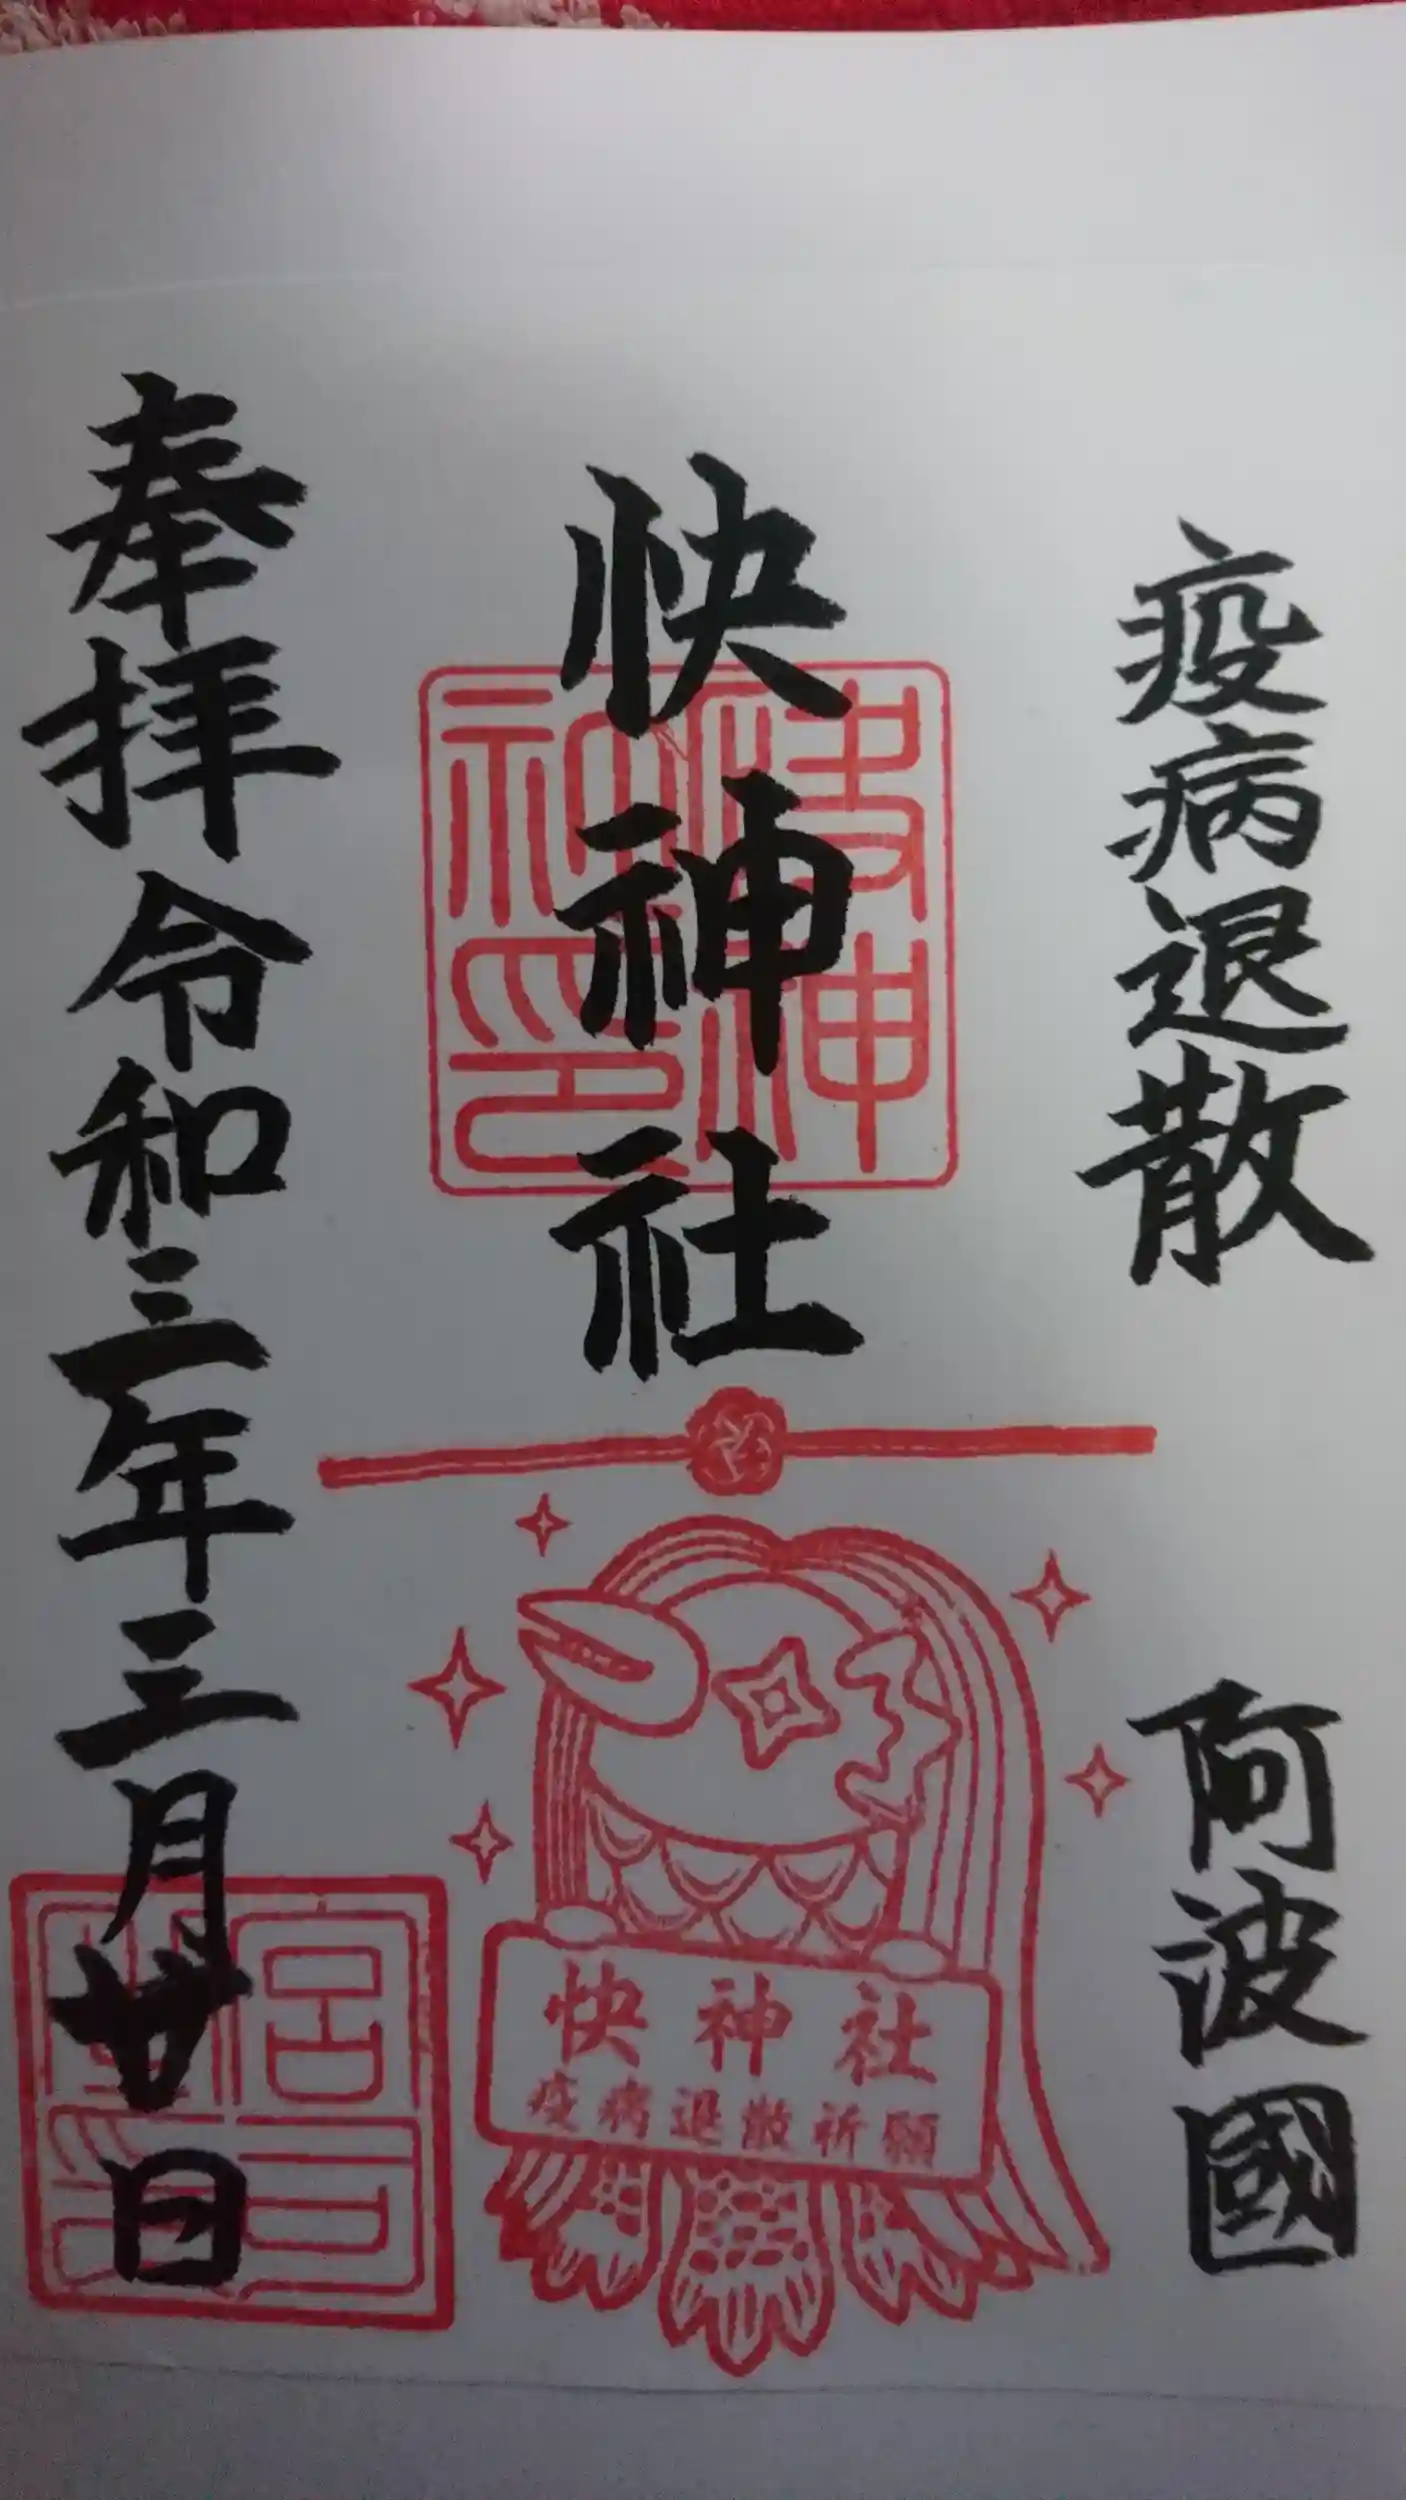 疫病退散
阿波國
快神社
奉拝令和三年三月廿日
快神社
疫病退散祈願